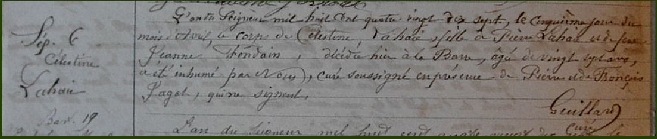 Sép. 6
Célestine
Lahaie
L'an du Seigneur mil huit cent quatre vingt dix sept, le cinquième jour du
mois d' le corps de Célestine Lahaie, fille à Pierre Lahaie et de feue
Jeanne décédée hier à la Barre, âgée de vingt sept ans,
a été inhumé par Nous, curé soussigné en présence de Pierre et de François
Pagot, qui ne signent,
Guillard
Curé
Bapt. 19
L'an du Seigneur mil huit cent quatre